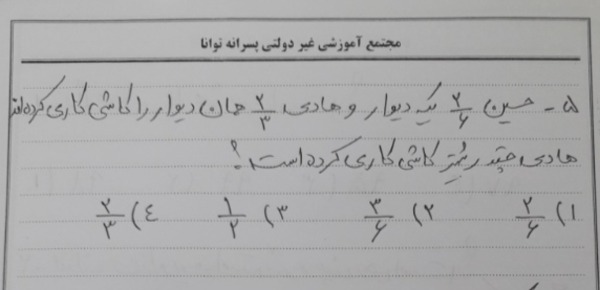 مجتمع آموزشی غیر دولتی پسرانه توانا
۵ - حسین ۲/۶ یک دیوار و هادی ۲/۳ همان دیوار را کاشی کاری کرده‌اند
هادی چقدر بیشتر کاشی کاری کرده است؟
۱) ۲/۶ ۲) ۳/۶ ۳) ۱/۲ ۴) ۲/۳